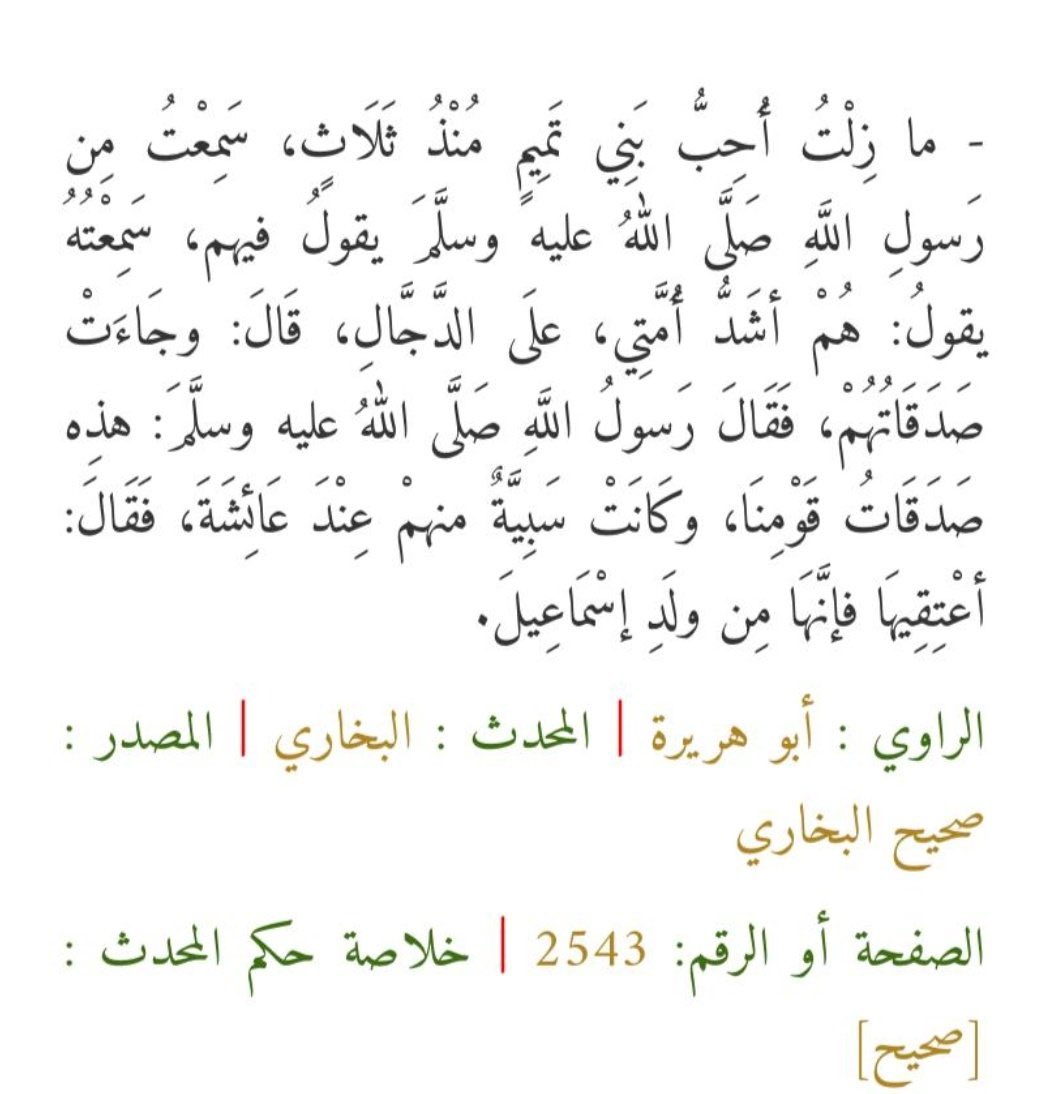 - ما زِلْتُ أُحِبُّ بَنِي تَمِيمٍ مُنْذُ ثَلَاثٍ، سَمِعْتُ مِن
رَسولِ اللَّهِ صَلَّى اللهُ عليه وسلَّمَ يقولُ فيهم، سَمِعْتُهُ
يقولُ: هُمْ أشَدُّ أُمَّتِي، علَى الدَّجَّالِ، قَالَ: وجَاءَتْ
صَدَقَاتُهُمْ، فَقَالَ رَسولُ اللَّهِ صَلَّى اللهُ عليه وسلَّمَ: هذِه
صَدَقَاتُ قَوْمِنَا، وكَانَتْ سَبِيَّةٌ منهمْ عِنْدَ عَائِشَةَ، فَقَالَ:
أعْتِقِيهَا فإنَّهَا مِن ولَدِ إسْمَاعِيلَ.
الراوي : أبو هريرة | المحدث : البخاري | المصدر :
صحيح البخاري
الصفحة أو الرقم: 2543 | خلاصة حكم المحدث :
[صحيح]